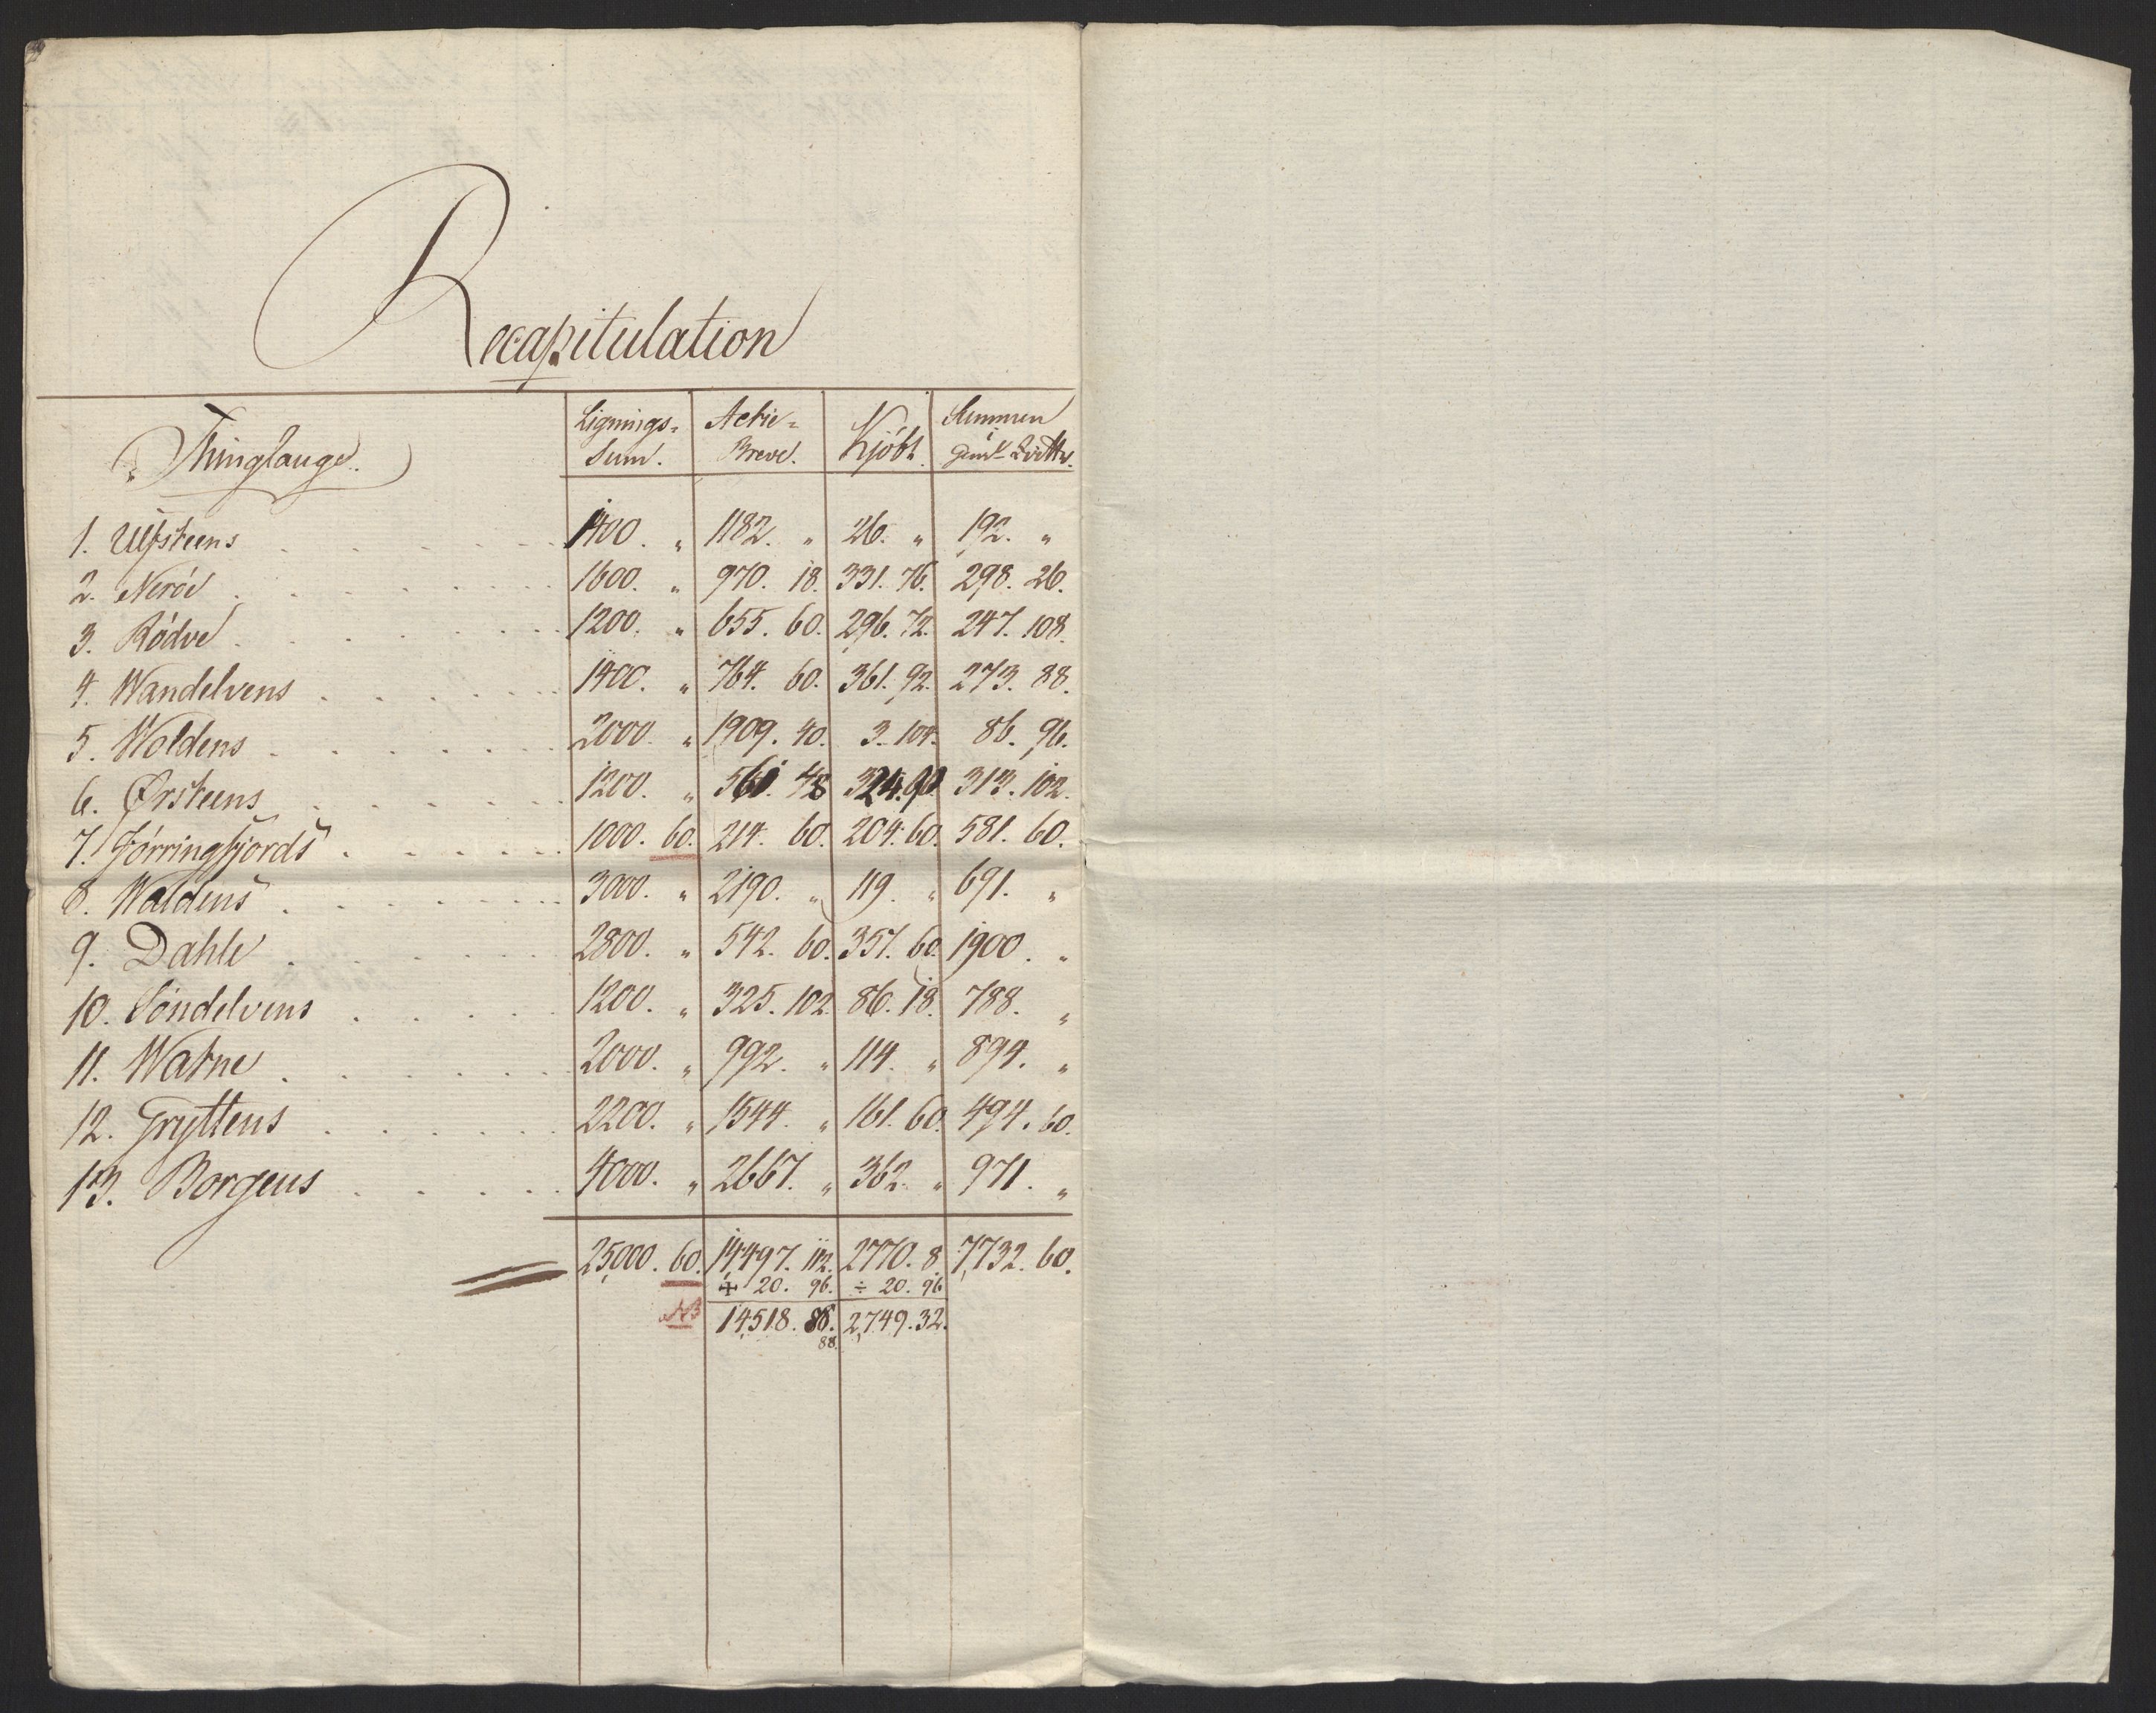 Recapitulation
Thinglauge. Lignings= Sum. Actie= Breve. Kjöbt. Summen
1. Ulfsteens 1400. " 1182. " 26. " 192. "
2. Neröe 1600. " 970. 18. 331. 76. 298. 26.
3. Rödve 1200. " 655. 60. 296. 72. 247. 108.
4. Wandelvens 1400. " 764. 60. 361. 92. 273. 88.
5. Woldens 2000. " 1909. 40. 3. 104. 86. 96.
6. Ørsteens 1200. " 561. 48 324. 90 313. 102.
7. Jörringfjords 1000. 60. 214. 60. 204. 60. 581. 60.
8. Waldens 3000. " 2190. " 119. " 691. "
9. Dahle 2800. " 542. 60. 357. 60. 1900. "
10. Söndelvens 1200. " 325. 102. 86. 18. 788. "
11. Watne 2000. " 992. " 114. " 894. "
12. Gryttens 2200. " 1544. " 161. 60. 494. 60.
13. Borgens 4000. " 2667. " 362. " 971. "
25,000. 60. 14,497. 112. 2770. 8. 7,732. 60.
+ 20. 96. ÷ 20. 96
NB 14518. 88. 2,749. 32.
88.